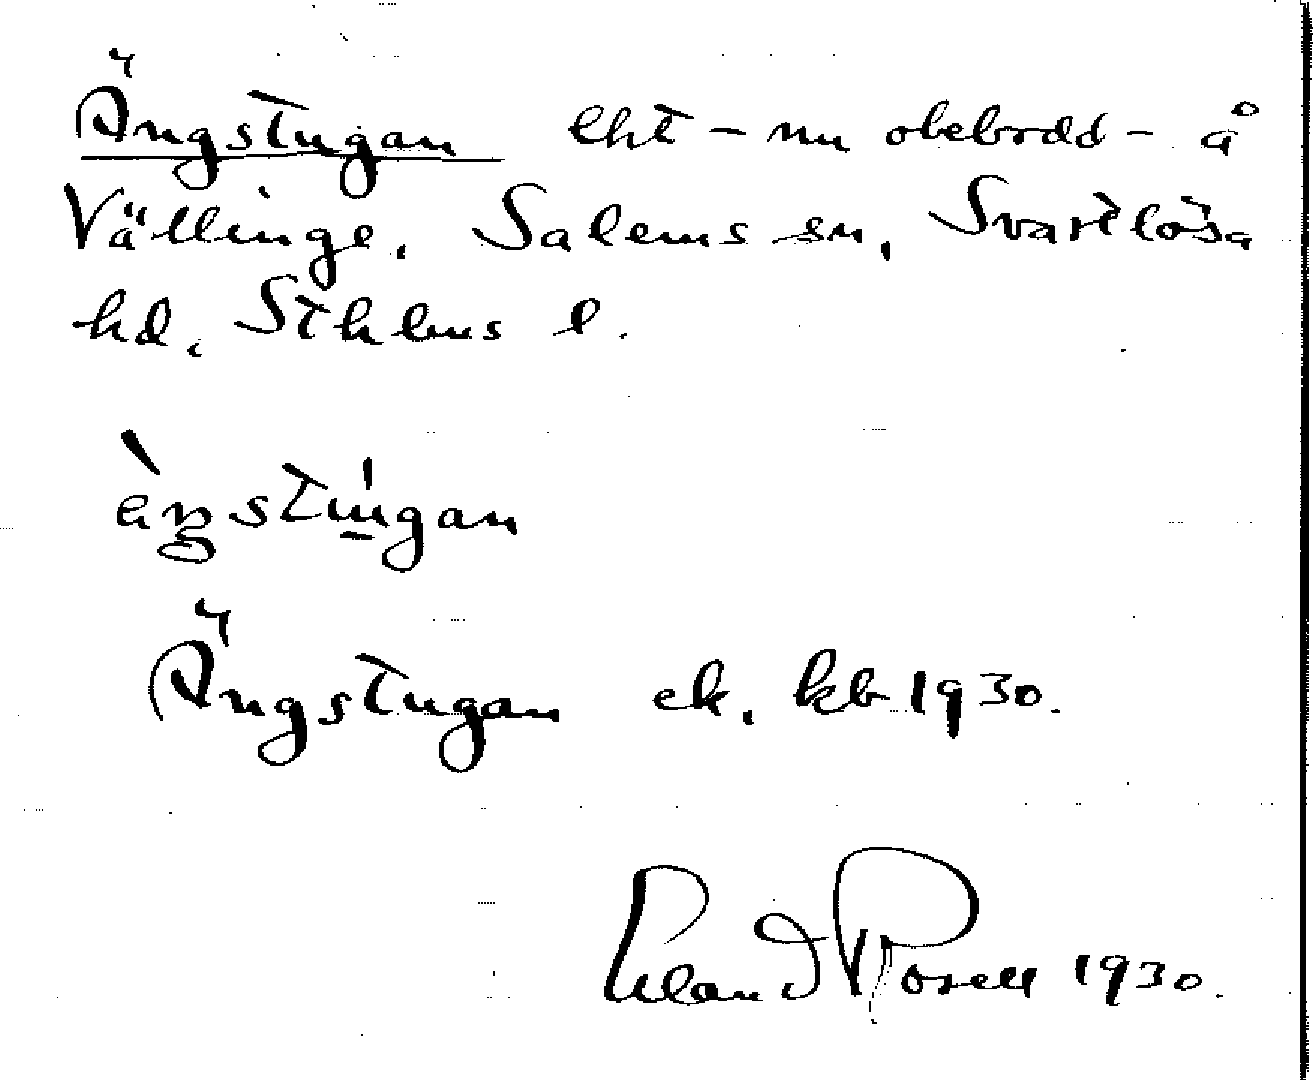 Ängstugan lht – nu obebodd – å
Vällinge, Salems sn, Svartlösa
hd, Sthlms l.
ä̀ŋstu̱̍gan
Ängstugan ek. kb 1930.
Rosell 1930.